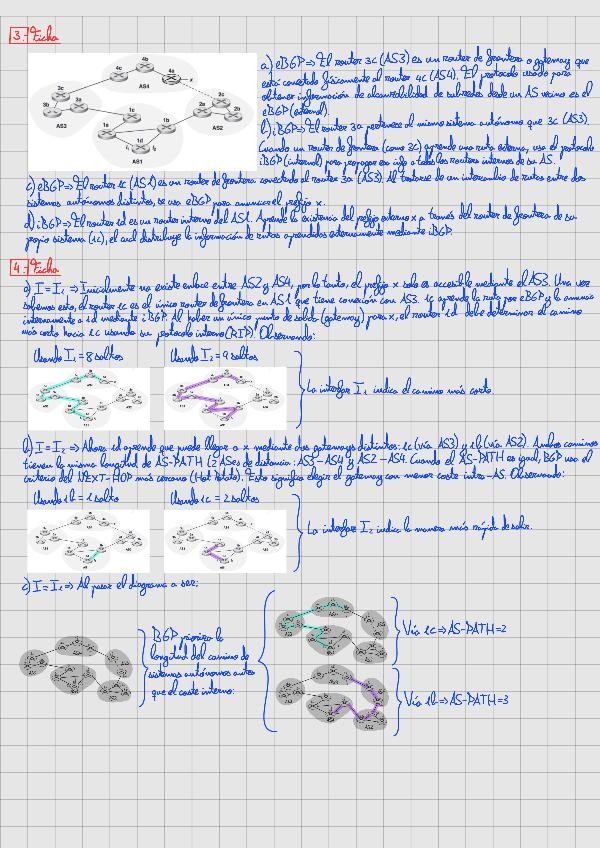 3.- Ficha
a) eBGP ⇒ El router 3c (AS3) es un router de frontera o gateway que
está conectado físicamente al router 4c (AS4). El protocolo usado para
obtener información de alcanzabilidad de subredes desde un AS vecino es el
eBGP (external).
b) iBGP ⇒ El router 3a pertenece al mismo sistema autónomo que 3c (AS3).
Cuando un router de frontera (como 3c) aprende una ruta externa, usa el protocolo
iBGP (internal) para propagar esa info a todos los routers internos de su AS.
4b
4c
4a
x
AS4
3c
3b
3a
AS3
2c
2a
2b
AS2
1c
1a
1b
1d
I1
I2
AS1
c) eBGP ⇒ El router 1c (AS1) es un router de frontera conectado al router 3a (AS3). Al tratarse de un intercambio de rutas entre dos
sistemas autónomos distintos, se usa eBGP para anunciar el prefijo x.
d) iBGP ⇒ El router 1d es un router interno del AS1. Aprende la existencia del prefijo externo x a través del router de frontera de su
propio sistema (1c), el cual distribuye la información de rutas aprendidas externamente mediante iBGP.
4.- Ficha
a) I = I1 ⇒ Inicialmente no existe enlace entre AS2 y AS4, por lo tanto, el prefijo x solo es accesible mediante el AS3. Una vez
sabemos esto, el router 1c es el único router de frontera en AS1 que tiene conexión con AS3. 1c aprende la ruta por eBGP y la anuncia
internamente a 1d mediante iBGP. Al haber un único punto de salida (gateway) para x, el router 1d debe determinar el camino
más corto hacia 1c usando su protocolo interno (RIP). Observando:
Usando I1 = 8 saltos
Usando I2 = 9 saltos
La interfaz I1 indica el camino más corto.
b) I = I2 ⇒ Ahora 1d aprende que puede llegar a x mediante dos gateways distintos: 1c (vía AS3) y 1b (vía AS2). Ambos caminos
tienen la misma longitud de AS-PATH (2 ASes de distancia: AS3-AS4 y AS2-AS4. Cuando el AS-PATH es igual, BGP usa el
criterio del NEXT-HOP más cercano (Hot Potato). Esto significa elegir el gateway con menor coste intra-AS. Observando:
Usando 1b = 1 salto
Usando 1c = 2 saltos
La interfaz I2 indica la manera más rápida de salir.
c) I = I1 ⇒ Al pasar el diagrama a ser:
BGP prioriza la
longitud del camino de
sistemas autónomos antes
que el coste interno:
Vía 1c ⇒ AS-PATH = 2
Vía 1b ⇒ AS-PATH = 3